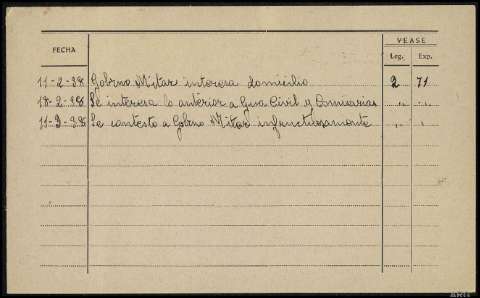 VEASE
FECHA
Leg. Exp.
11-2-38 Gobrno Militar interesa domicilio 2 71
18-2-38 Se interesa lo anterior a Gua Civil y Comisarias " "
11-3-38 Se contesto a Gobrno Militar infructuosamente " "